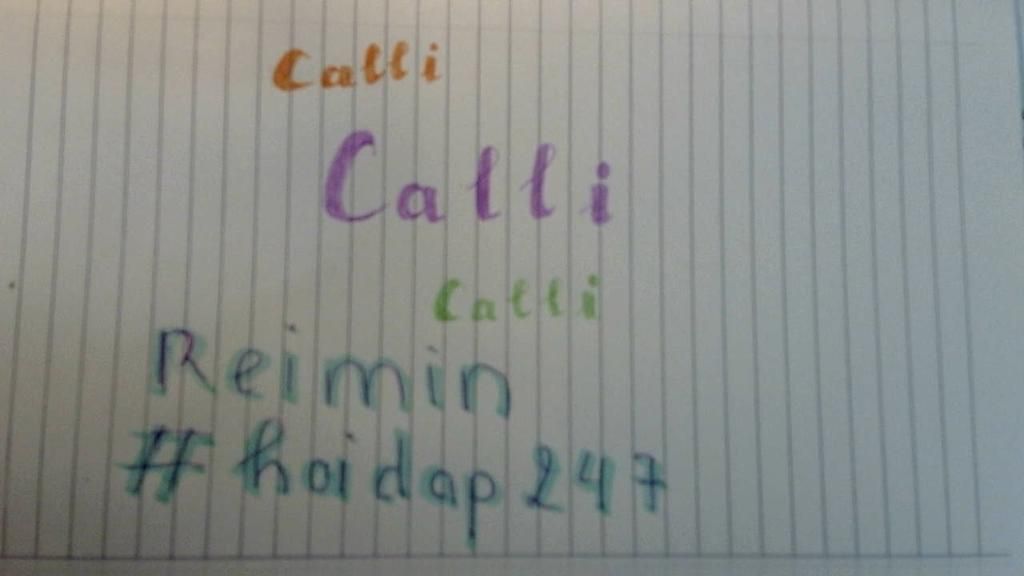 Calli
Calli
Calli
Reimin
# hoidap 247